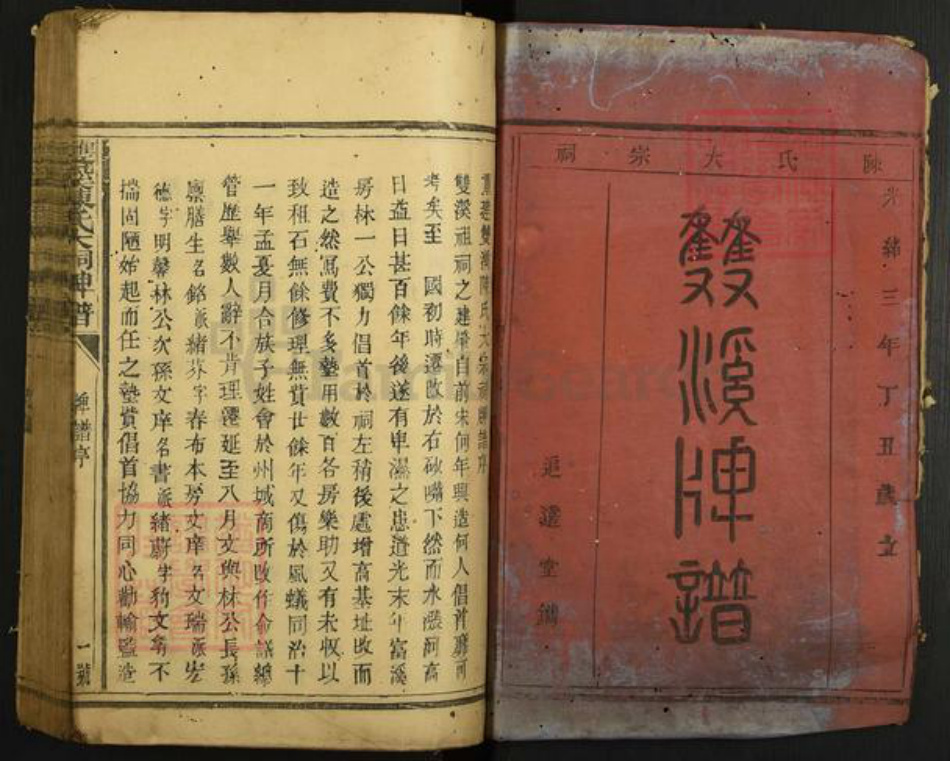 陳氏大宗祠
光緒三年丁丑歲立
雙溪牌譜
追遠堂鐫
重建雙溪陳氏大宗祠牌譜序
雙溪祖祠之建肇自前宋何年興造何人倡首靡可
考矣至 國初時遷改於右砂嘴下然而水漲河高
日益日甚百餘年後遂有卑濕之患道光末年富溪
房林一公獨力倡首於祠左稍後處增高基址改而
造之然爲費不多墊用數百各房樂助又有未收以
致租石無餘修理無貲廿餘年又傷於風蟻同治十
一年孟夏月合族子姓會於州城商所改作僉議總
管歷舉數人辭不肯理遷延至八月文與林公長孫
廩膳生名銘派緒芬字春布本房文庠名文瑞派宏
德字明馨林公次孫文庠名書派緒蔚字狗文等不
揣固陋始起而任之墊貲倡首協力同心勸輸監造
陳氏大祠牌譜
牌譜序
一號